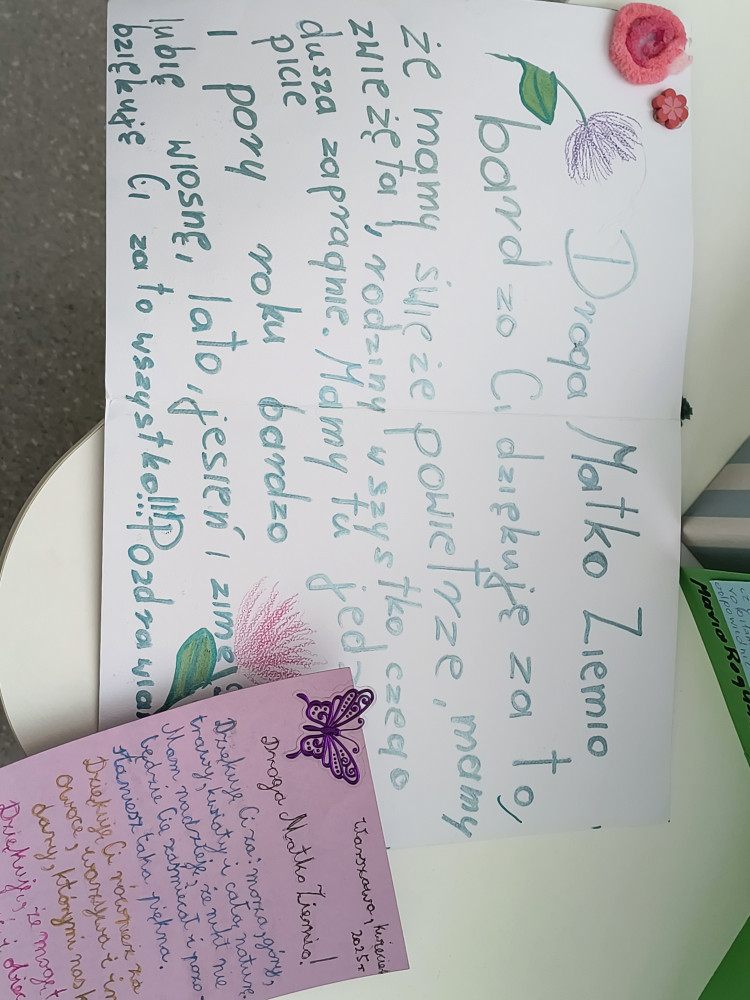 Droga Matko Ziemio
bardzo Ci dziękuję za to,
że mamy świeże powietrze, mamy
zwieżęta, rodziny wszystko czego
dusza zapragnie. Mamy tu
picie
i pory roku bardzo
lubię wiosnę, lato, jesień i zimę
bziękuję Ci za to wszystko!!!
Warszawa,
2025r
Droga Matko Ziemio!
Dziękuję Ci za: morza, góry,
trawy, kwiaty i całą naturę.
Mam nadzieję, że nikt nie
będzie Cię zaśmiecał i pozo-
staniesz taka piękna.
Dziękuję Ci również za
owoce, warzywa i
dary, którymi nas
Dziękuję, że